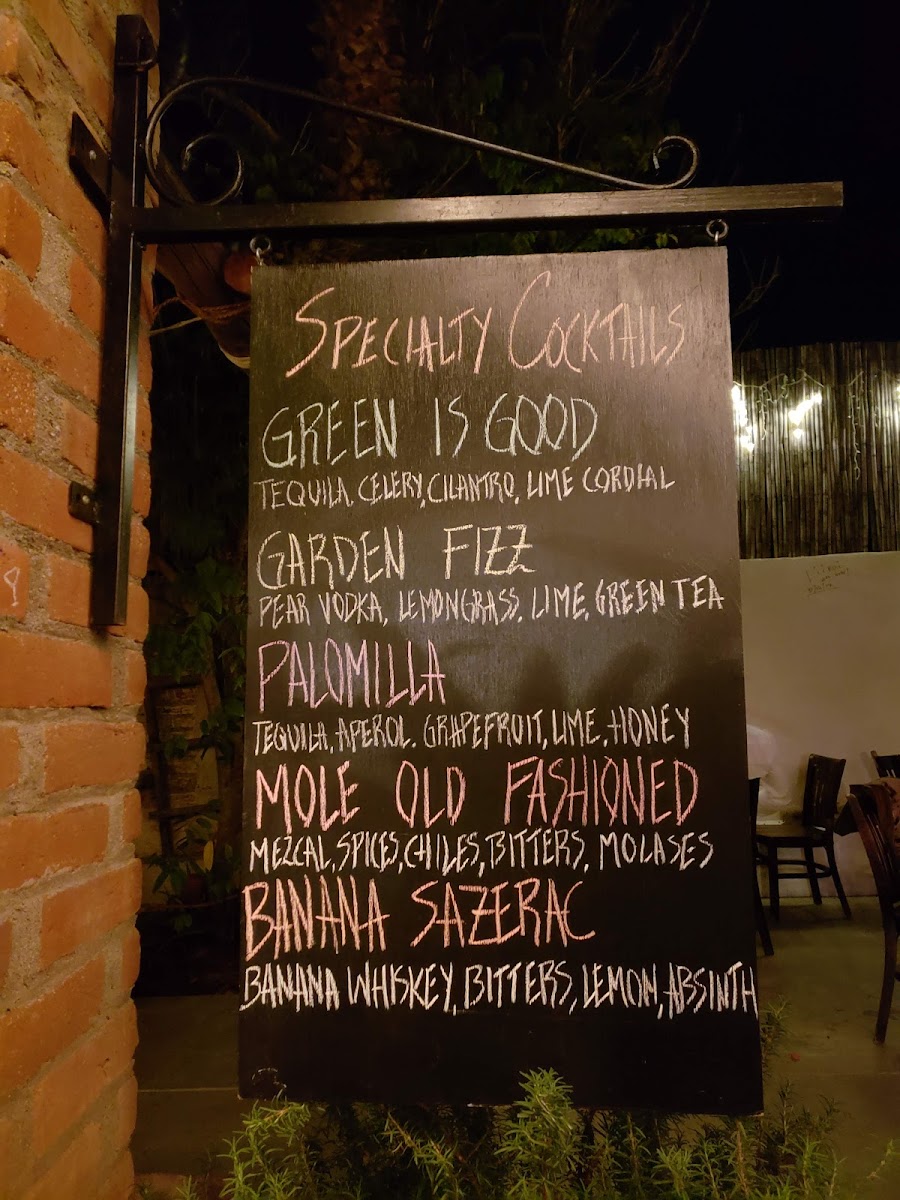 SPECIALTY COCKTAILS
GREEN IS GOOD
TEQUILA, CELERY, CILANTRO, LIME CORDIAL
GARDEN FIZZ
PEAR VODKA, LEMONGRASS, LIME, GREEN TEA
PALOMILLA
TEQUILA, APEROL. GRAPEFRUIT, LIME, HONEY
MOLE OLD FASHIONED
MEZCAL, SPICES, CHILES, BITTERS, MOLASES
BANANA SAZERAC
BANANA WHISKEY, BITTERS, LEMON, ABSINTH